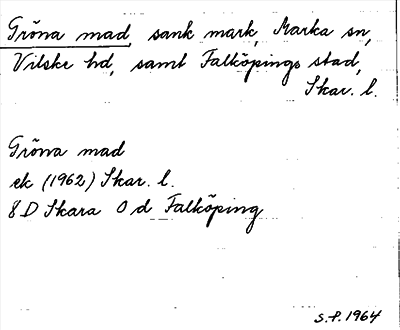 Gröna mad, sank mark, Marka sn,
Vilske hd, samt Falköpings stad,
Skar. l.
Gröna mad
ek (1962) Skar. l.
8D Skara 0d Falköping
S.P. 1964